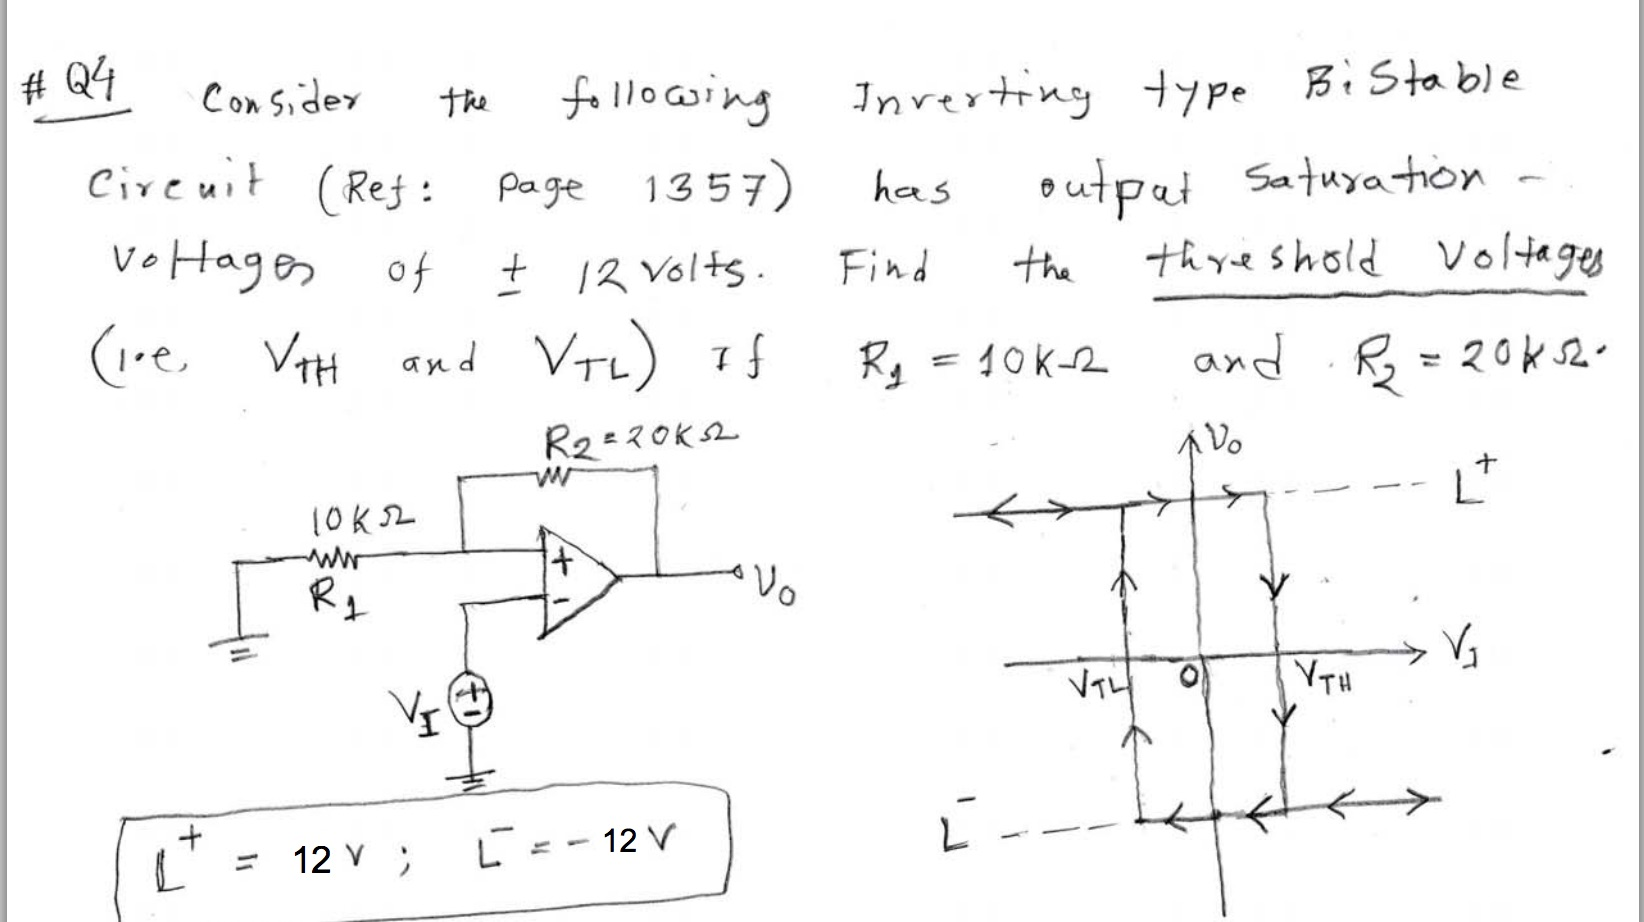 # Q4 Consider the following Inverting type BiStable
Circuit (Ref: page 1357) has output saturation -
voltages of ± 12 volts. Find the threshold voltages
(i.e, VTH and VTL) If R1 = 10KΩ and R2 = 20KΩ.
R2=20KΩ
10KΩ
R1
+
-
VO
VI
+
-
L+ = 12 V ; L- = - 12 V
VO
L+
VI
VTL
O
VTH
L-